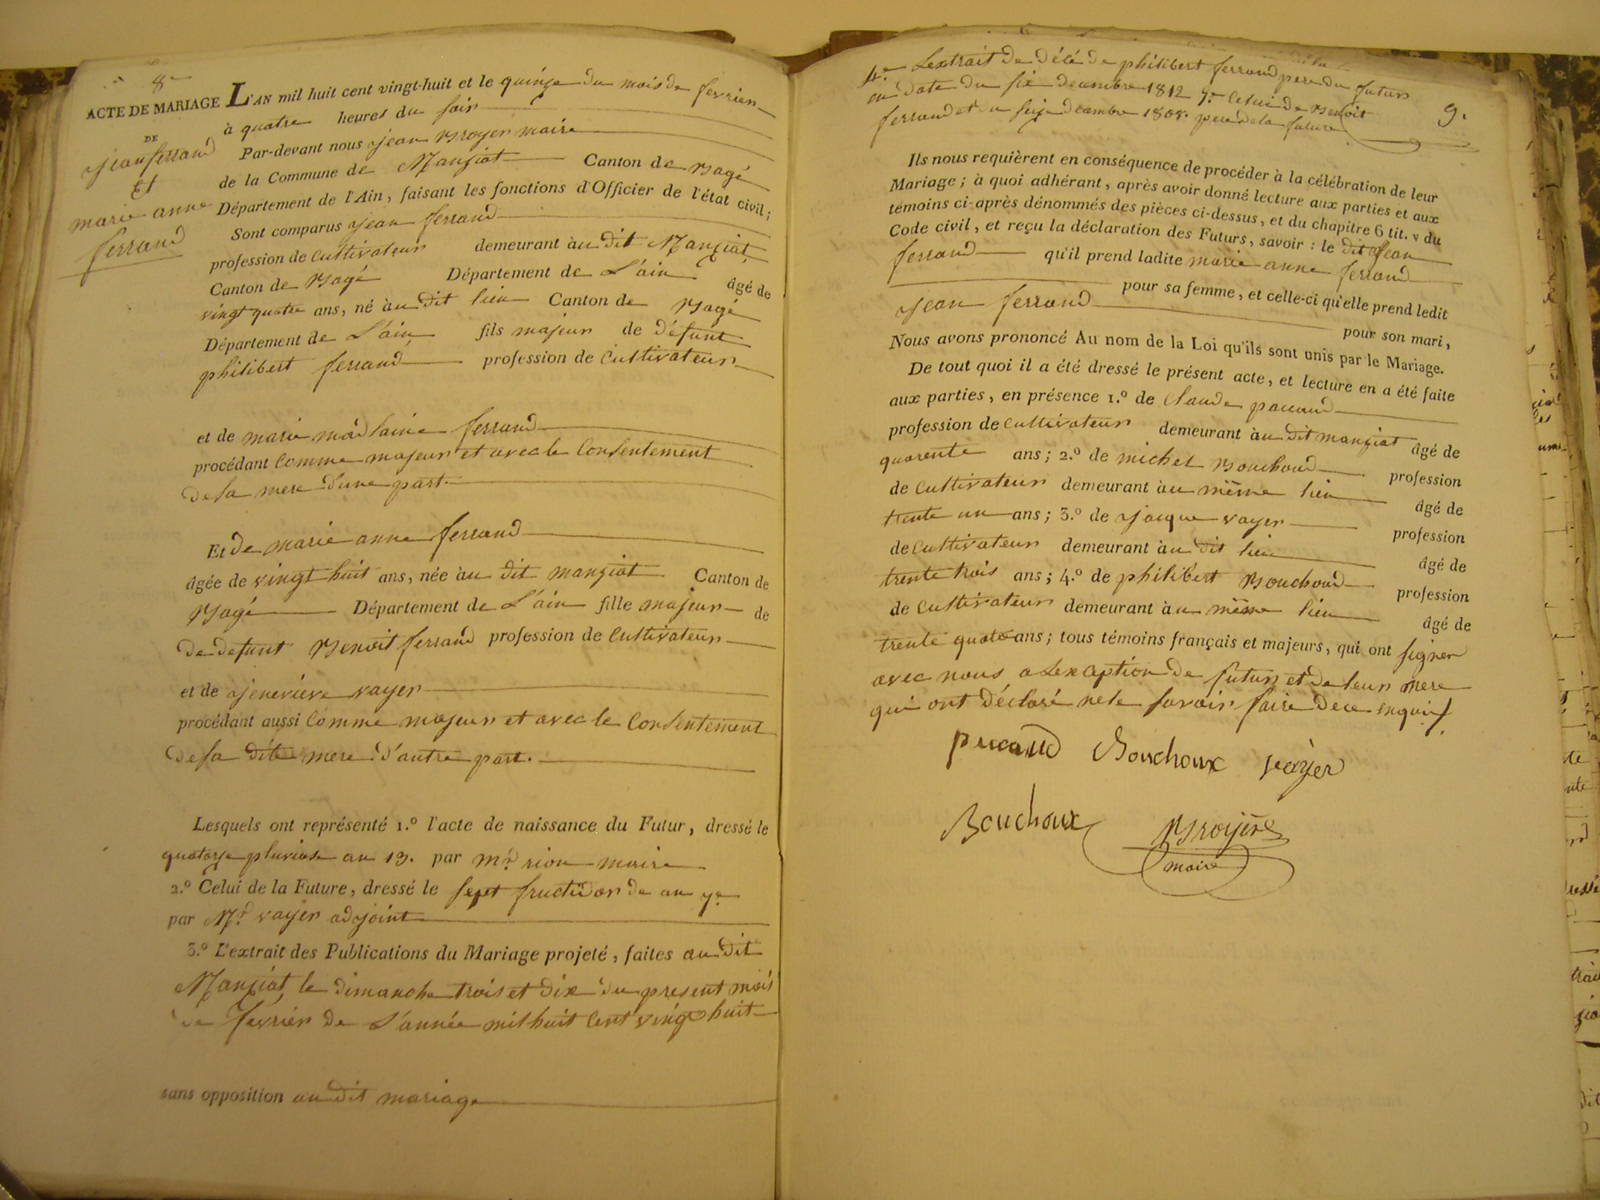 8e
ACTE DE MARIAGE
DE
jean ferrand
Et
marie anne
ferrand
L'AN mil huit cent vingt-huit et le quinze du mois de fevrier
à quatre heures du soir
Par-devant nous jean Broyer maire
de la Commune de Manziat Canton de Bagé
Département de l'Ain, faisant les fonctions d'Officier de l'état civil;
Sont comparus jean ferrand
profession de Cultivateur demeurant àu dit Manziat
Canton de Bagé Département de L'ain âgé de
vingt quatre ans, né àu dit lieu Canton de Bagé
Département de L'ain fils majeur de défunt
philibert ferrand profession de Cultivateur
et de marie madlaine ferrand
procédant Comme majeur et avec le Consentement
de sa mere d'une part
Et de marie anne ferrand
âgée de vingt huit ans, née àu dit manziat Canton de
Bagé Département de L'ain fille majeur de
de defunt Benoit ferrand profession de Cultivateur
et de jenevieve vayer
procédant aussi Comme majeur et avec le Consentement
de sa dite mere d'autre part.
Lesquels ont représenté 1.º l'acte de naissance du Futur, dressé le
quatorze pluviose an 13. par Mr. rion maire
2.º Celui de la Future, dressé le sept fructidor de an 7e
par Mr. vayer adjoint
3.º L'extrait des Publications du Mariage projeté, faites au dit
Manziat, le dimanche trois et dix du present mois
de fevrier de L'année mil huit Cent vingt huit
sans opposition au dit mariage
4.e Lextrait de décé de philibert ferrand pere du futur
en date du six decembre 1812 Celui de Benoit
ferrand et u seize decembre 1808. pere de la future
9.
Ils nous requièrent en conséquence de procéder à la célébration de leur
Mariage; à quoi adhérant, après avoir donné lecture aux parties et aux
témoins ci-après dénommés des pièces ci-dessus, et du chapitre 6 tit. v du
Code civil, et reçu la déclaration des Futurs, savoir : le dit jean
ferrand qu'il prend ladite marie anne ferrand
pour sa femme, et celle-ci qu'elle prend ledit
jean ferrand pour son mari,
Nous avons prononcé Au nom de la Loi qu'ils sont unis par le Mariage.
De tout quoi il a été dressé le présent acte, et lecture en a été faite
aux parties, en présence 1.º de Claude paccaud
profession de Cultivateur demeurant àu dit manziat âgé de
quarente ans; 2.º de michel Bouchoud profession
de Cultivateur demeurant àu même lieu âgé de
trente un ans; 3.º de jacque vayer profession
de Cultivateur demeurant àu dit lieu âgé de
trente trois ans; 4.º de philibert Bouchoud profession
de Cultivateur demeurant àu même lieu âgé de
trente quatre ans; tous témoins français et majeurs, qui ont signer
avec nous a Lexception de futurs et de leur mere
qui ont déclaré ne le savoir faire de ce enquis
pacaud Bouchoux vayer
Bouchoux Broyer
maire